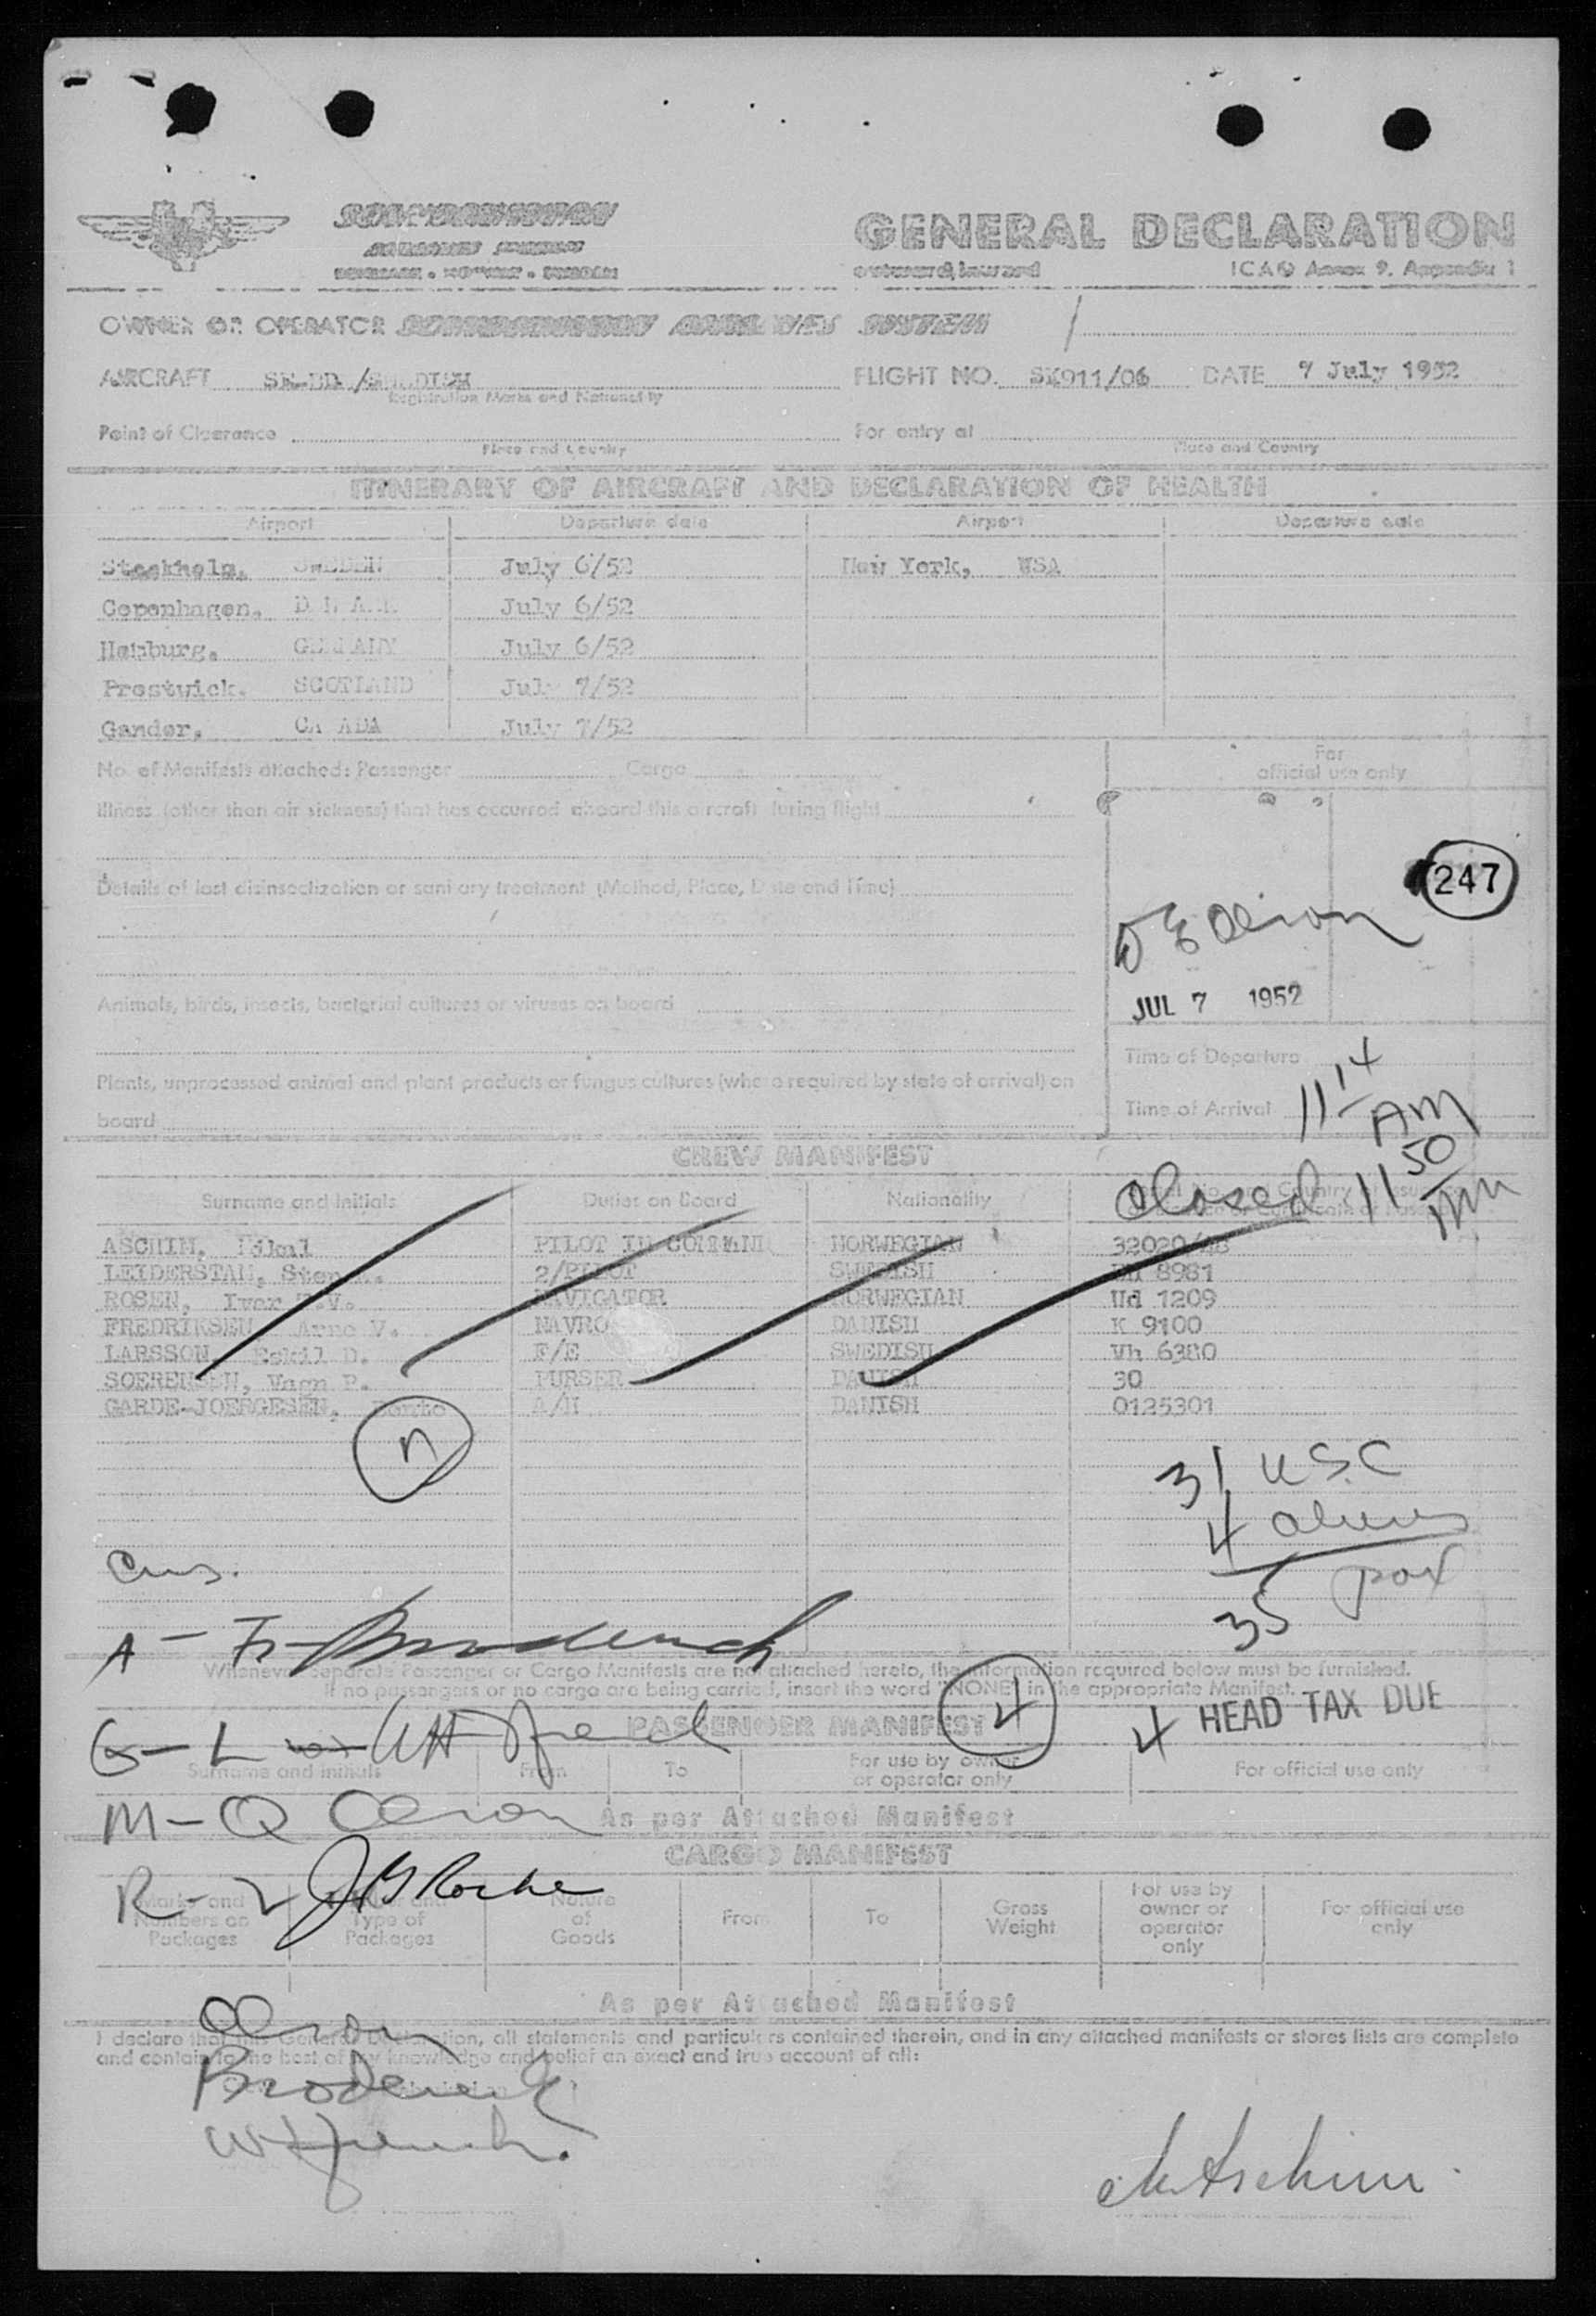 GENERAL DECLARATION
outward/inward ICAO Annex 9. Appendix 1
OWNER OR OPERATOR SCANDINAVIAN AIRLINES SYSTEM
AIRCRAFT /SWEDISH FLIGHT NO. SK911/06 DATE 7 July 1952
Registration Marks and Nationality
Point of Clearance For entry at
Place and Country Place and Country
ITINERARY OF AIRCRAFT AND DECLARATION OF HEALTH
Airport Departure date Airport Departure date
Stockholm. SWEDEN July 6/52 New York, USA
Copenhagen. DENMARK July 6/52
Hamburg. GERMANY July 6/52
Prestwick. SCOTLAND July 7/52
Gander. CANADA July 7/52
No. of Manifests attached: Passenger Cargo
For
official use only
Illness (other than air sickness) that has occurred aboard this aircraft during flight
247
Details of last disinsectization or sanitary treatment (Method, Place, Date and Time)
D E Olson
JUL 7 1952
Animals, birds, insects, bacterial cultures or viruses on board
Time of Departure
Plants, unprocessed animal and plant products or fungus cultures (where required by state of arrival) on
board
Time of Arrival 11 14 AM
CREW MANIFEST
closed 11 50
Surname and Initials Duties on Board Nationality
ASCHIM, PILOT IN COMMAND NORWEGIAN 32020/48
LEIDERSTAM, Sten 2/PILOT SWEDISH 8981
ROSEN, Ivar T.V. NAVIGATOR NORWEGIAN Ud 1209
FREDRIKSEN Arne V. NAVRO DANISH K 9100
LARSSON, Eskil D. F/E SWEDISH Vh 6380
SOERENSEN, Vagn P. PURSER DANISH 30
GARDE-JOERGESEN, A/H DANISH 0125301
n
31 USC
4 aliens
35 pax
Cus.
A - Broderick
Whenever separate Passenger or Cargo Manifests are not attached hereto, the information required below must be furnished.
If no passengers or no cargo are being carried, insert the word "NONE" in the appropriate Manifest.
4
4 HEAD TAX DUE
PASSENGER MANIFEST
G - L WH French
Surname and initials From To For use by owner
or operator only For official use only
M - Q Olson
As per Attached Manifest
CARGO MANIFEST
R - Z Roche
Marks and
Numbers on
Packages
Number and
Type of
Packages
Nature
of
Goods
From To
Gross
Weight
For use by
owner or
operator
only
For official use
only
As per Attached Manifest
Olson
I declare that General Declaration, all statements and particulars contained therein, and in any attached manifests or stores lists are complete
and contain to the best of my knowledge and belief an exact and true account of all:
Broderick
WH French.
Aschim.